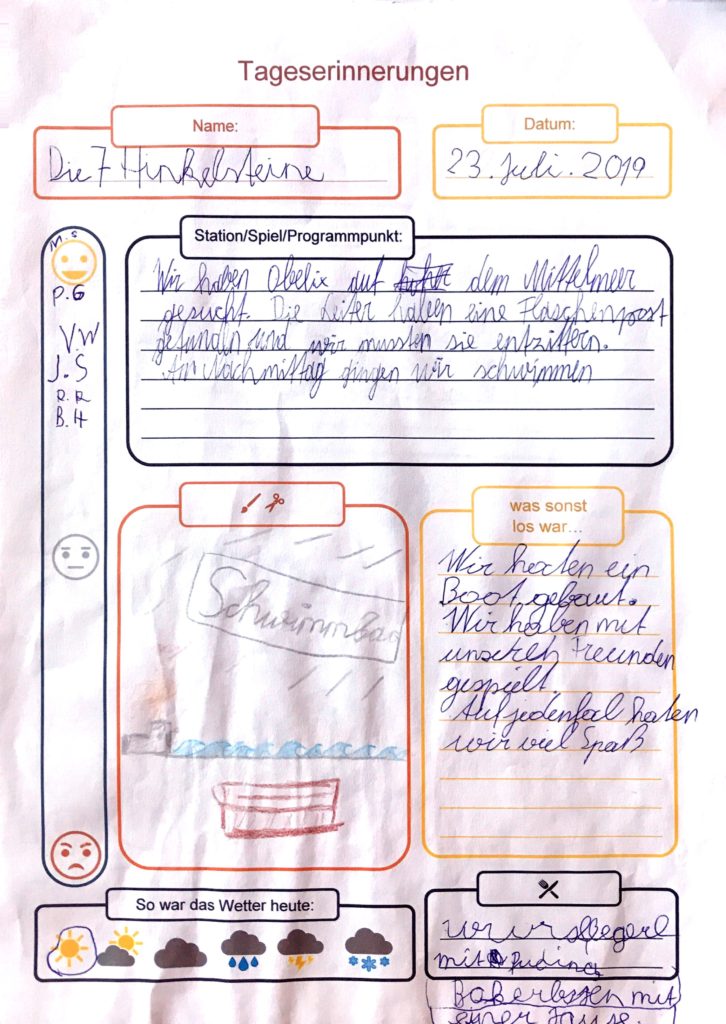 Tageserinnerungen
Name:
Die 7 Hinkelsteine
Datum:
23. Juli. 2019
M.S
P.G
V W
J.S
R.R
B.H
Station/Spiel/Programmpunkt:
Wir haben Obelix auf dem Mittelmeer
gesucht. Die Leiter haben eine Flaschenpost
gefundn und wir mussten sie entziffern.
Am Nachmittag gingen wir schwimmen
Schwimmbad
was sonst
los war...
Wir haten ein
Boot gebaut.
Wir haben mit
unseren Freunden
gespielt
Auf jedenfal haten
wir viel Spaß
So war das Wetter heute:
mit Puding
mit
einer Jause.